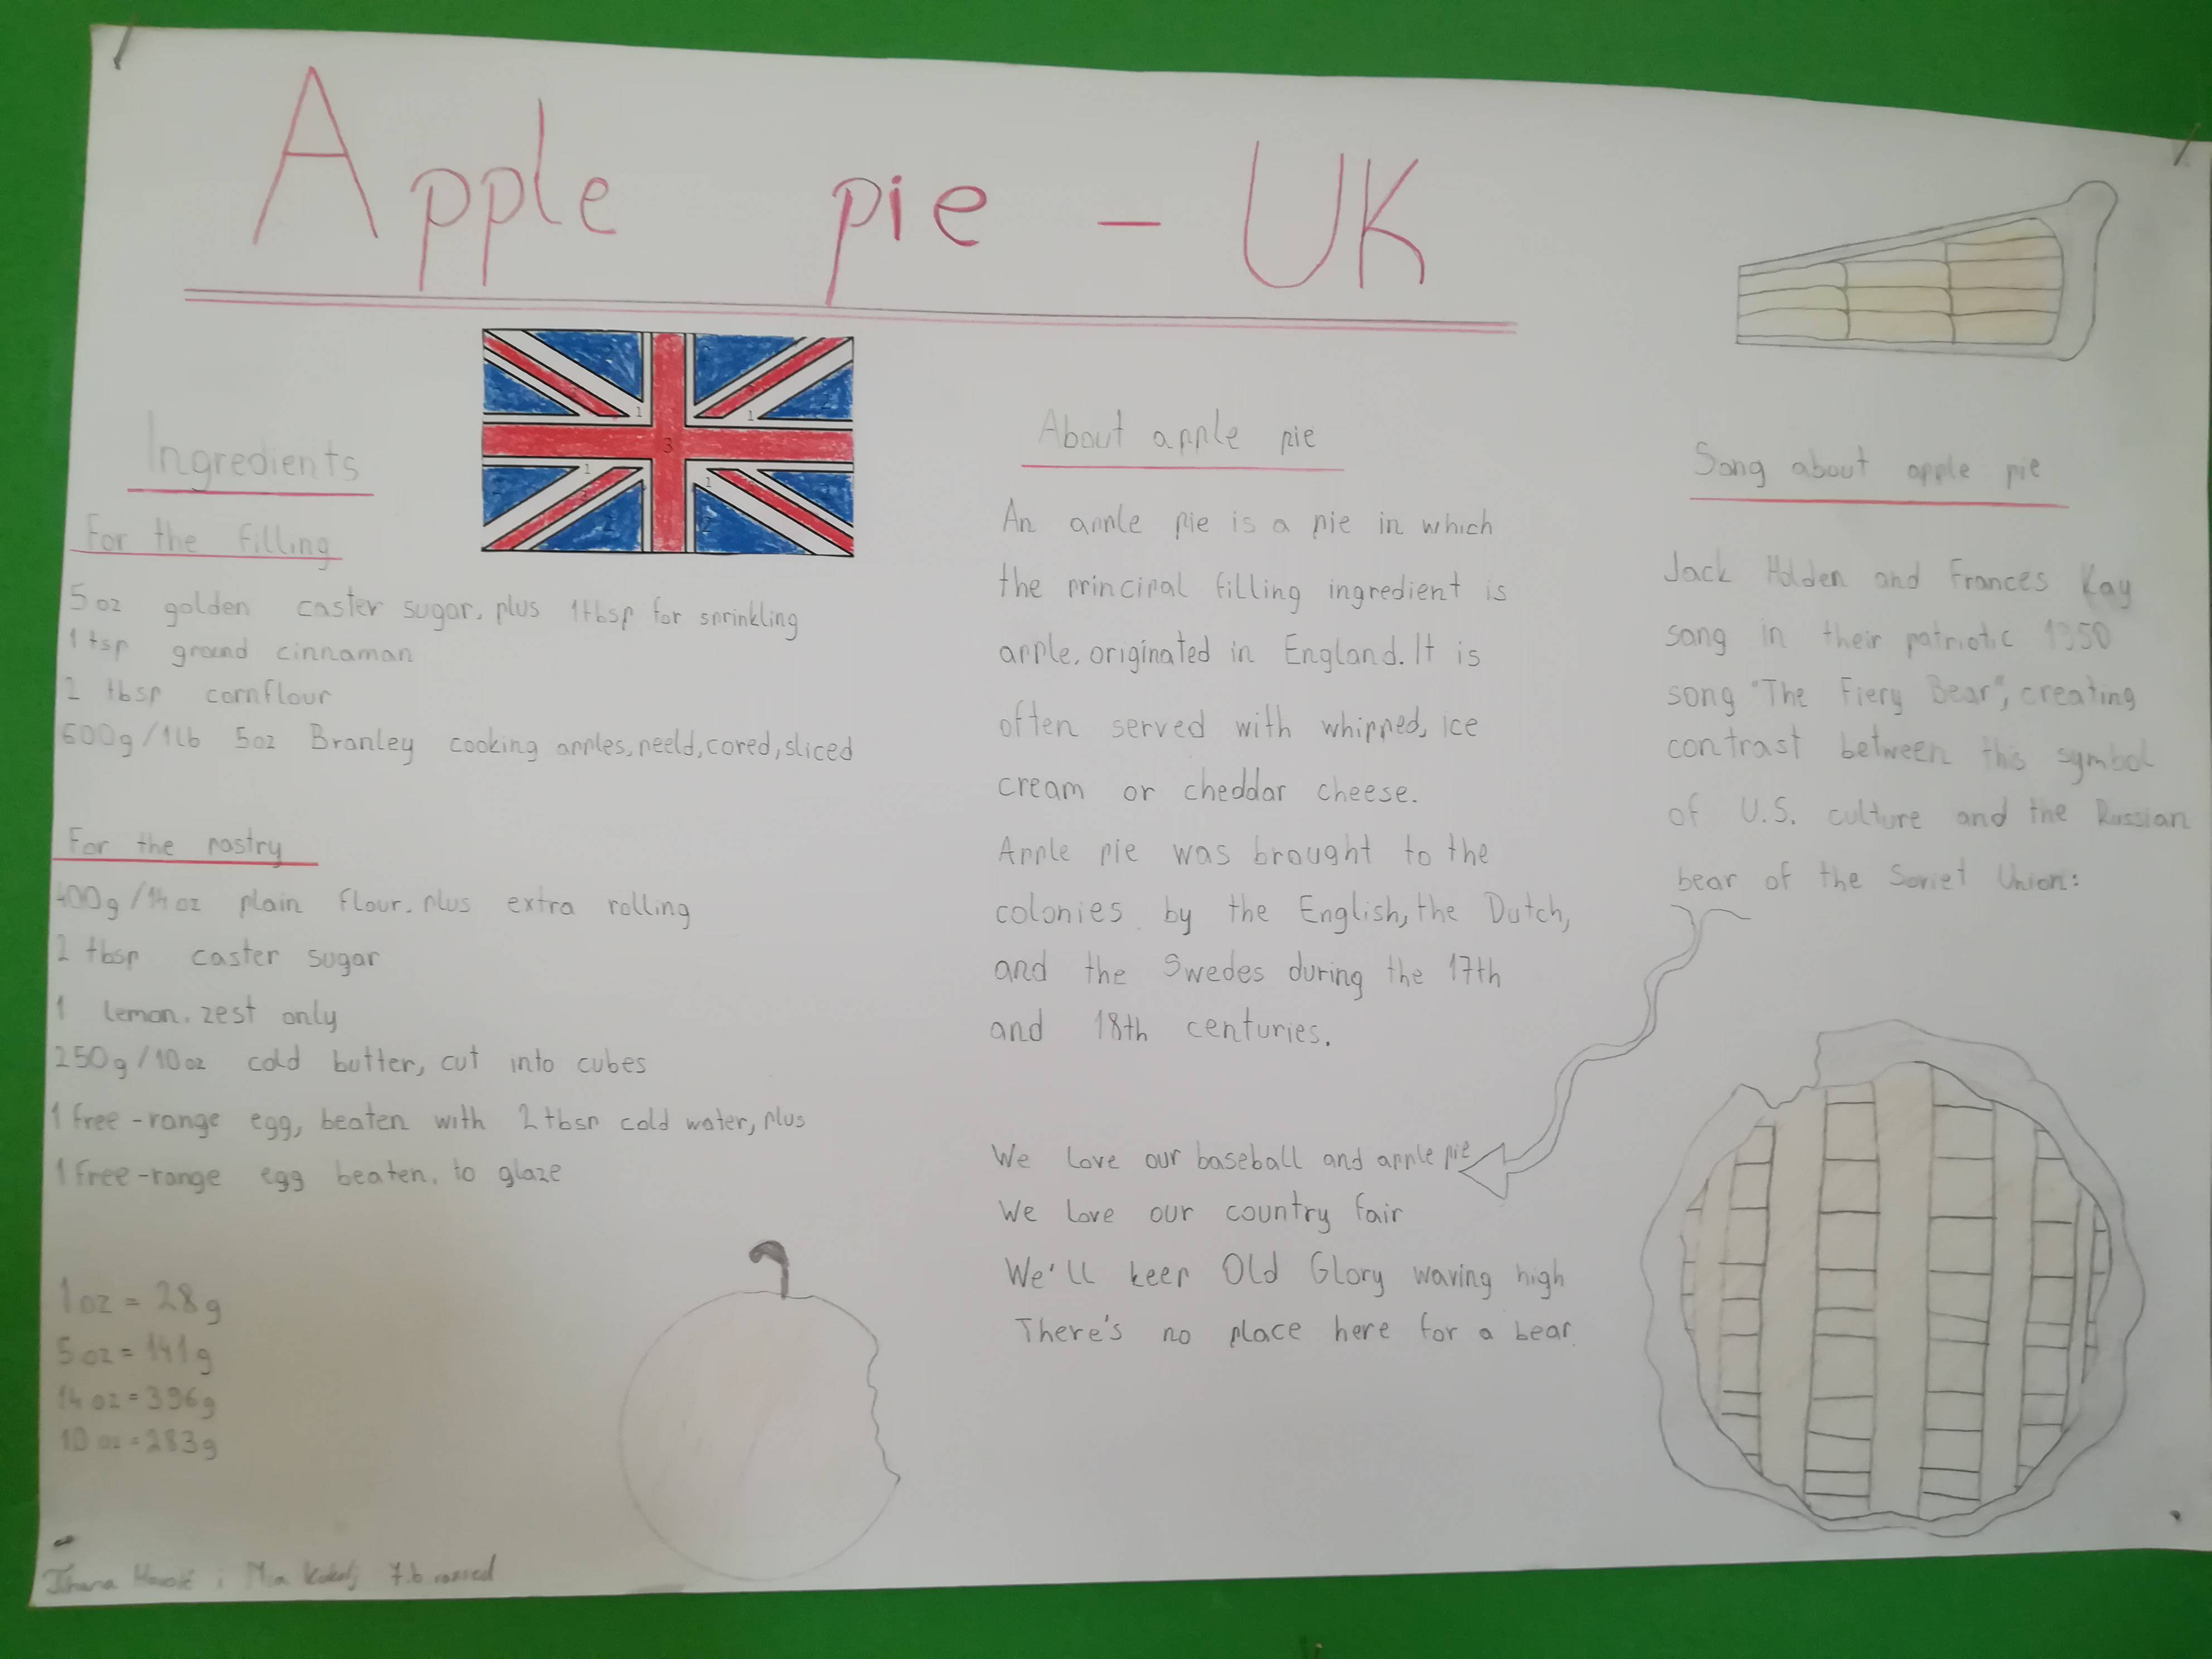 Apple pie - UK
Ingredients
For the filling
5 oz golden caster sugar, plus 1 tbsp for sprinkling
1 tsp ground cinnaman
2 tbsp cornflour
600g/1lb 5oz Bramley cooking apples, peeld, cored, sliced
For the pastry
400g/14oz plain flour, plus extra rolling
2 tbsp caster sugar
1 lemon, zest only
250g/10oz cold butter, cut into cubes
1 free-range egg, beaten with 2 tbsp cold water, plus
1 free-range egg beaten, to glaze
1 oz = 28g
5 oz = 141g
14 oz = 396g
10 oz = 283g
i Mia 7.b razred
About apple pie
An apple pie is a pie in which
the principal filling ingredient is
apple, originated in England. It is
often served with whipped, ice
cream or cheddar cheese.
Apple pie was brought to the
colonies by the English, the Dutch,
and the Swedes during the 17th
and 18th centuries.
Song about apple pie
Jack Holden and Frances Kay
sang in their patriotic 1950
song "The Fiery Bear", creating
contrast between this symbol
of U.S. culture and the Russian
bear of the Soviet Union:
We love our baseball and apple pie
We love our country fair
We'll keep Old Glory waving high
There's no place here for a bear.